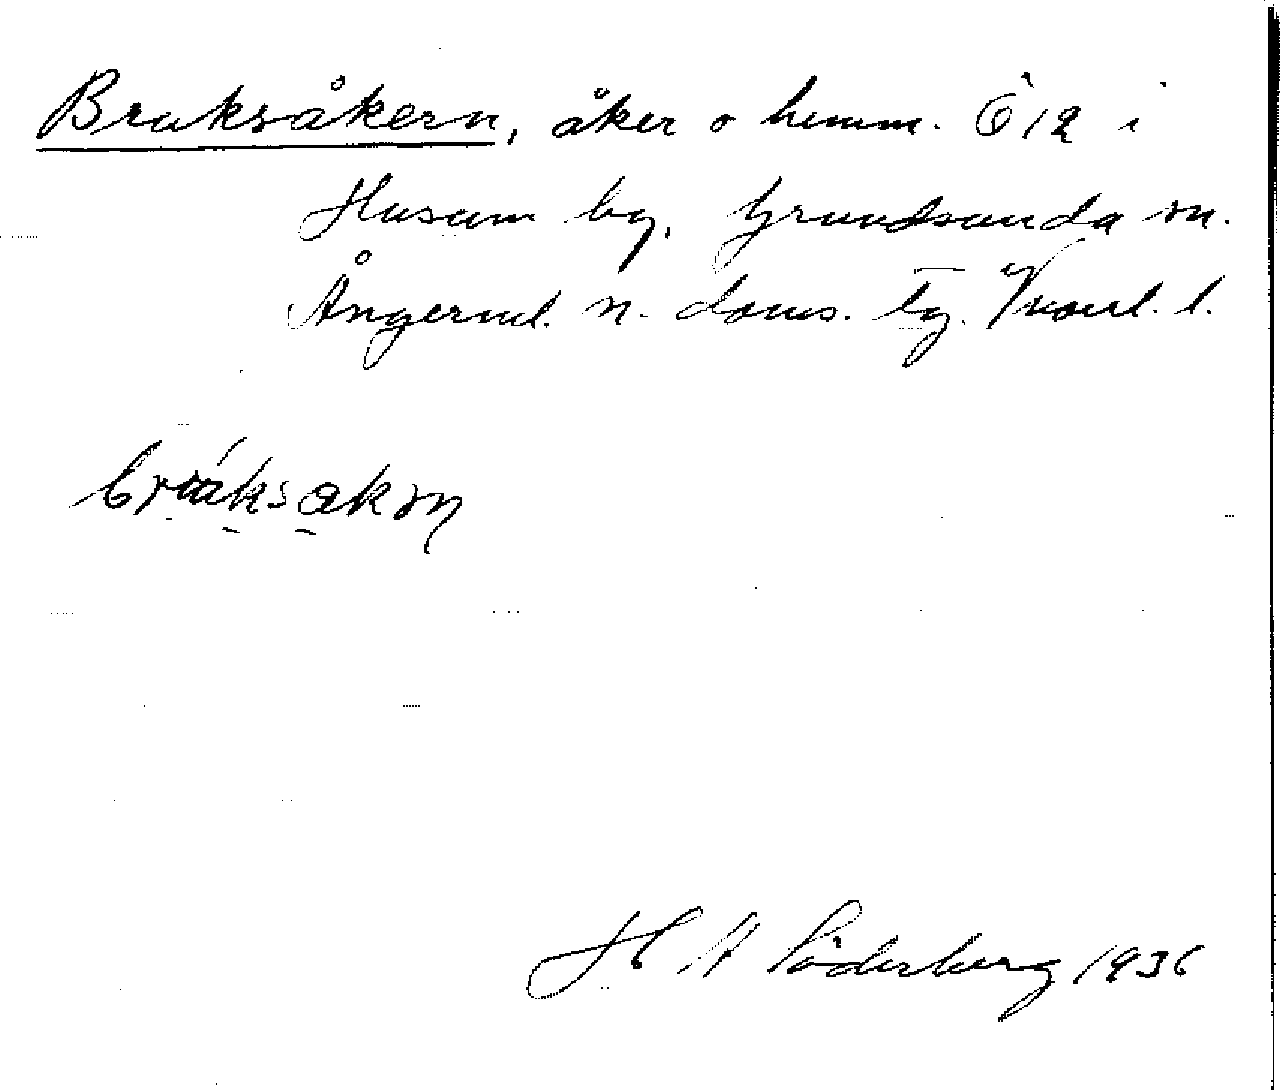 Bruksåkern, åker o hemm. 612 i
Husum by, Grundsunda sn.
Ångerml. n. doms. tg. Vnorl. l.
H A Söderberg 1936